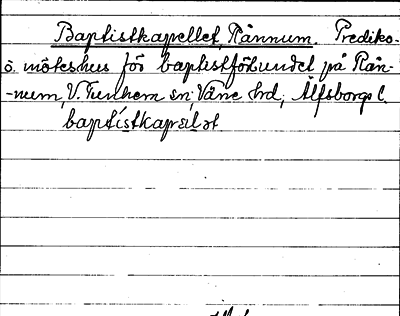 Baptistkapellet, Rännum. Prediko-
o. möteshus för baptistförbundet på Rän-
-num, V. Tunhem sn; Väne hd, Älfsborgs l.
baptístkapẹḷət